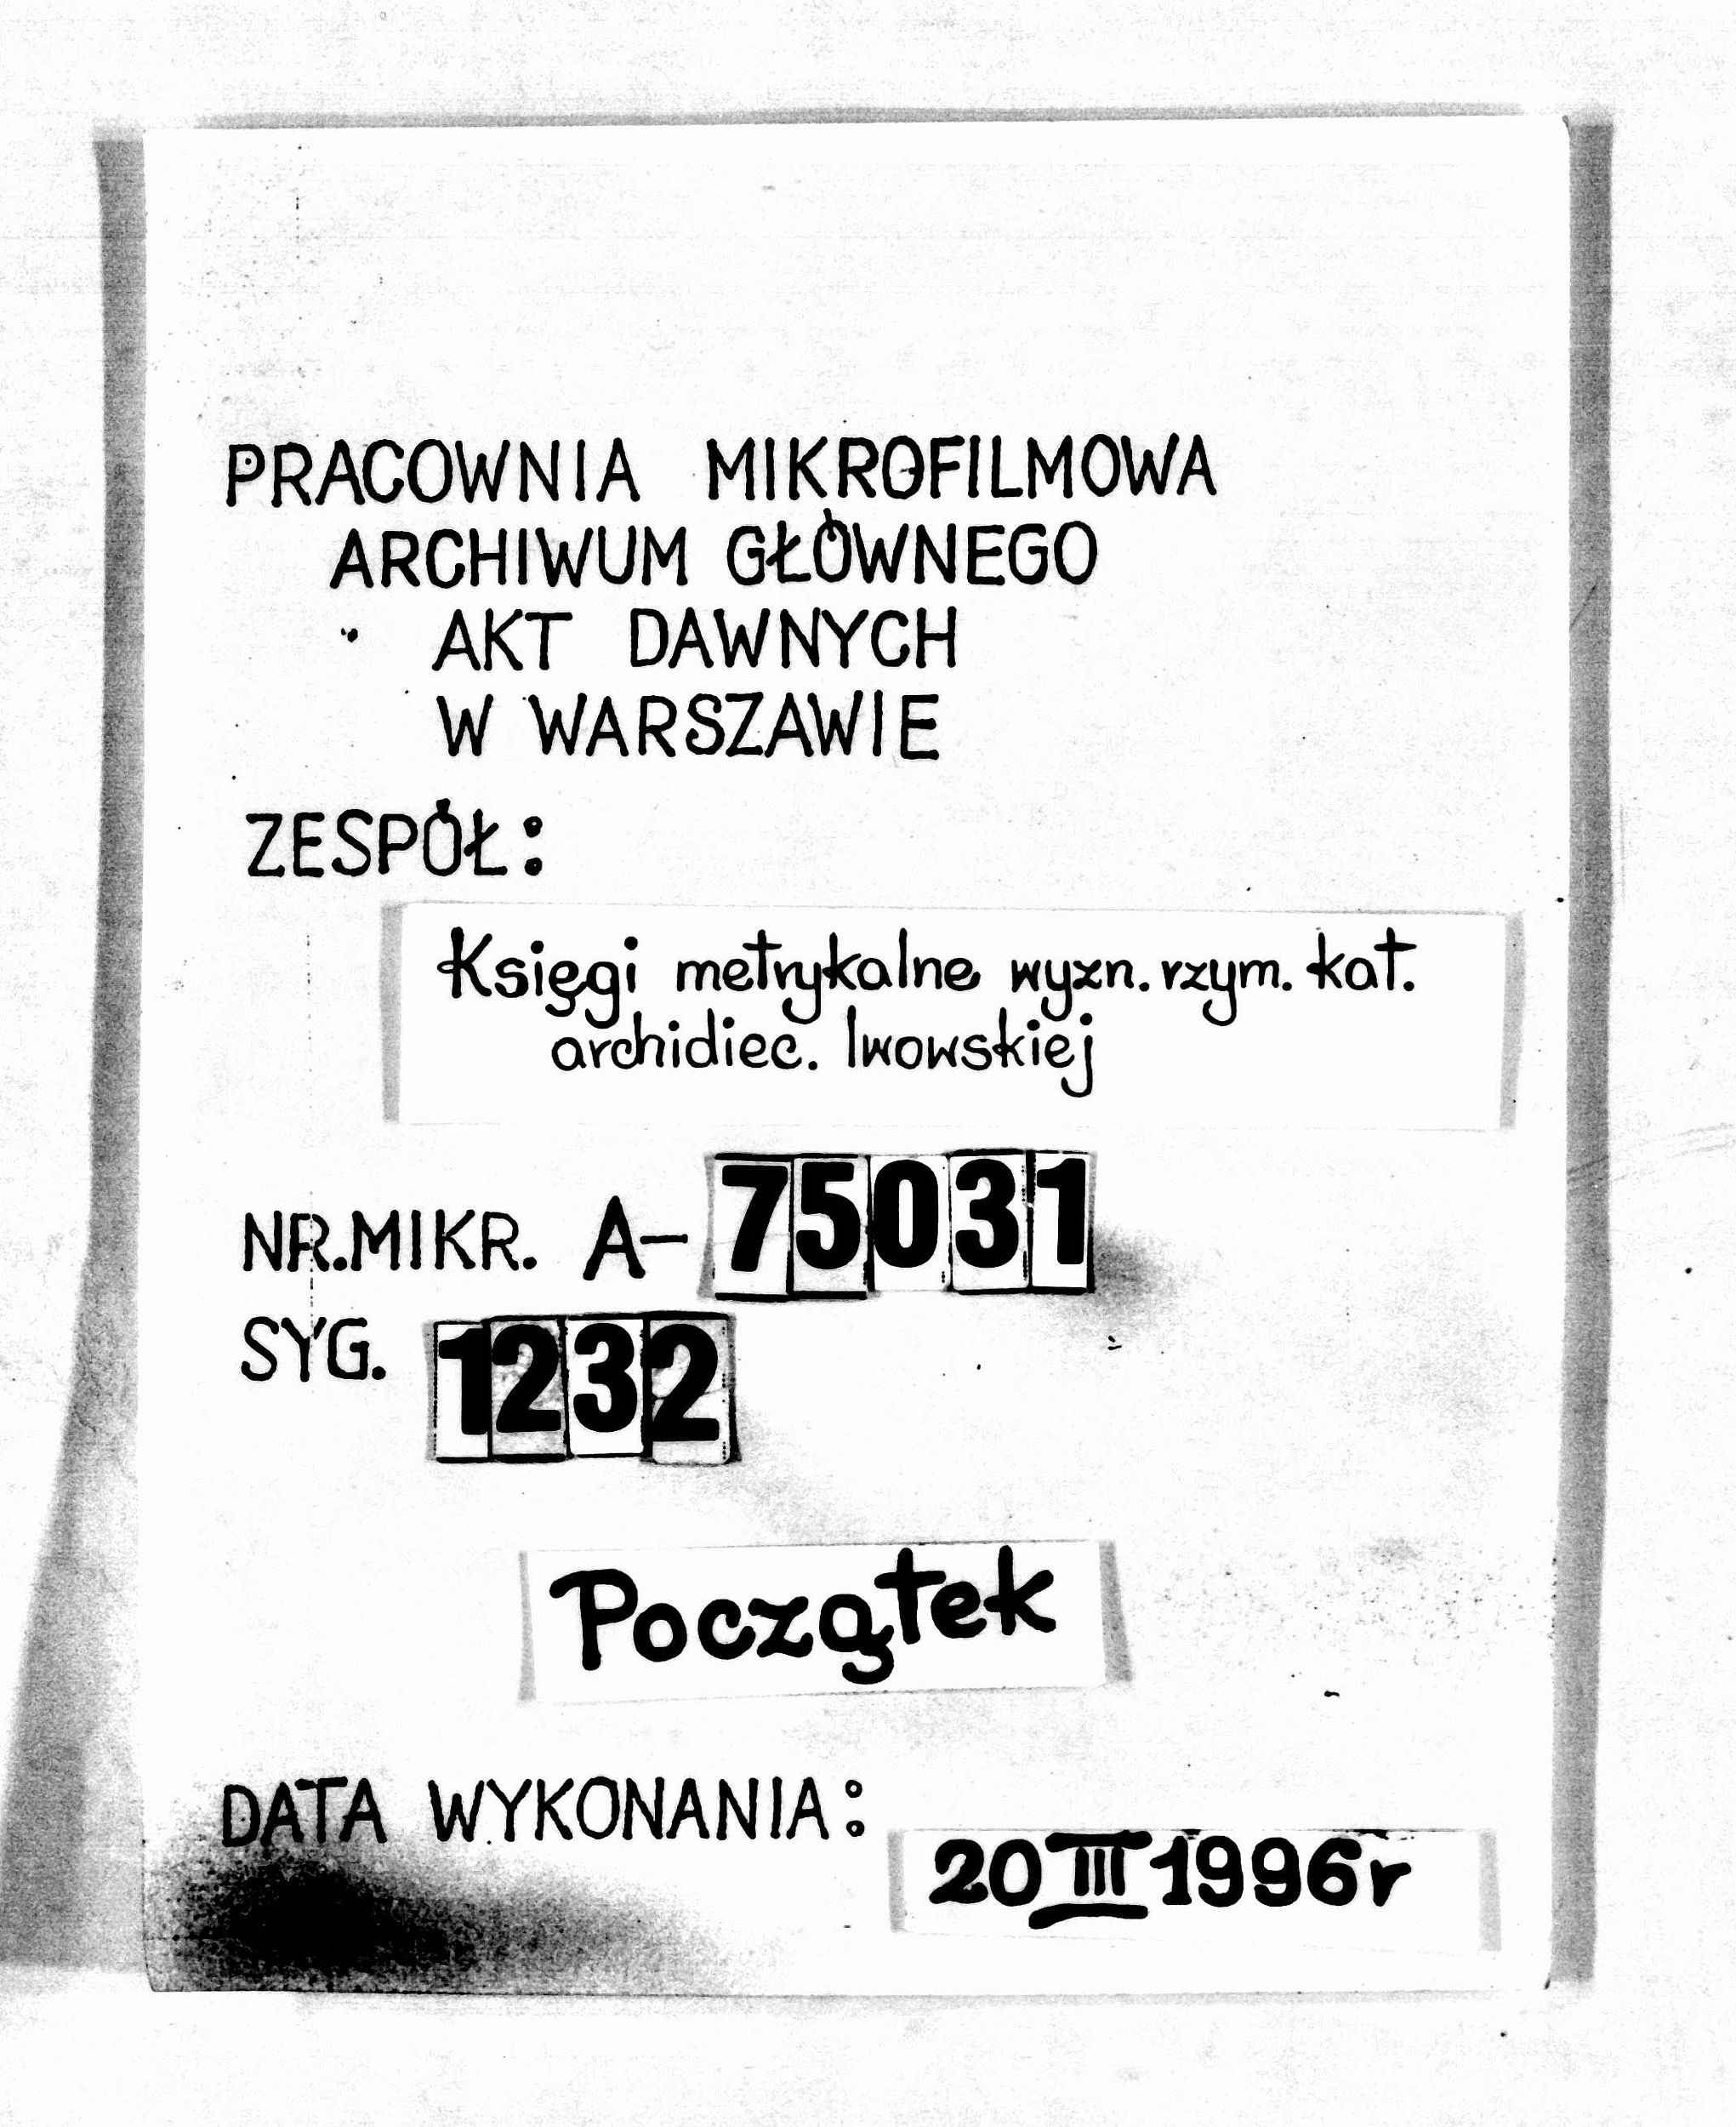 PRACOWNIA MIKROFILMOWA
ARCHIWUM GŁÓWNEGO
AKT DAWNYCH
W WARSZAWIE
ZESPÓŁ:
Księgi metrykalne wyzn. rzym. kat.
archidiec. lwowskiej
NR.MIKR. A-75031
SYG. 1232
Początek
DATA WYKONANIA:
20 III 1996r